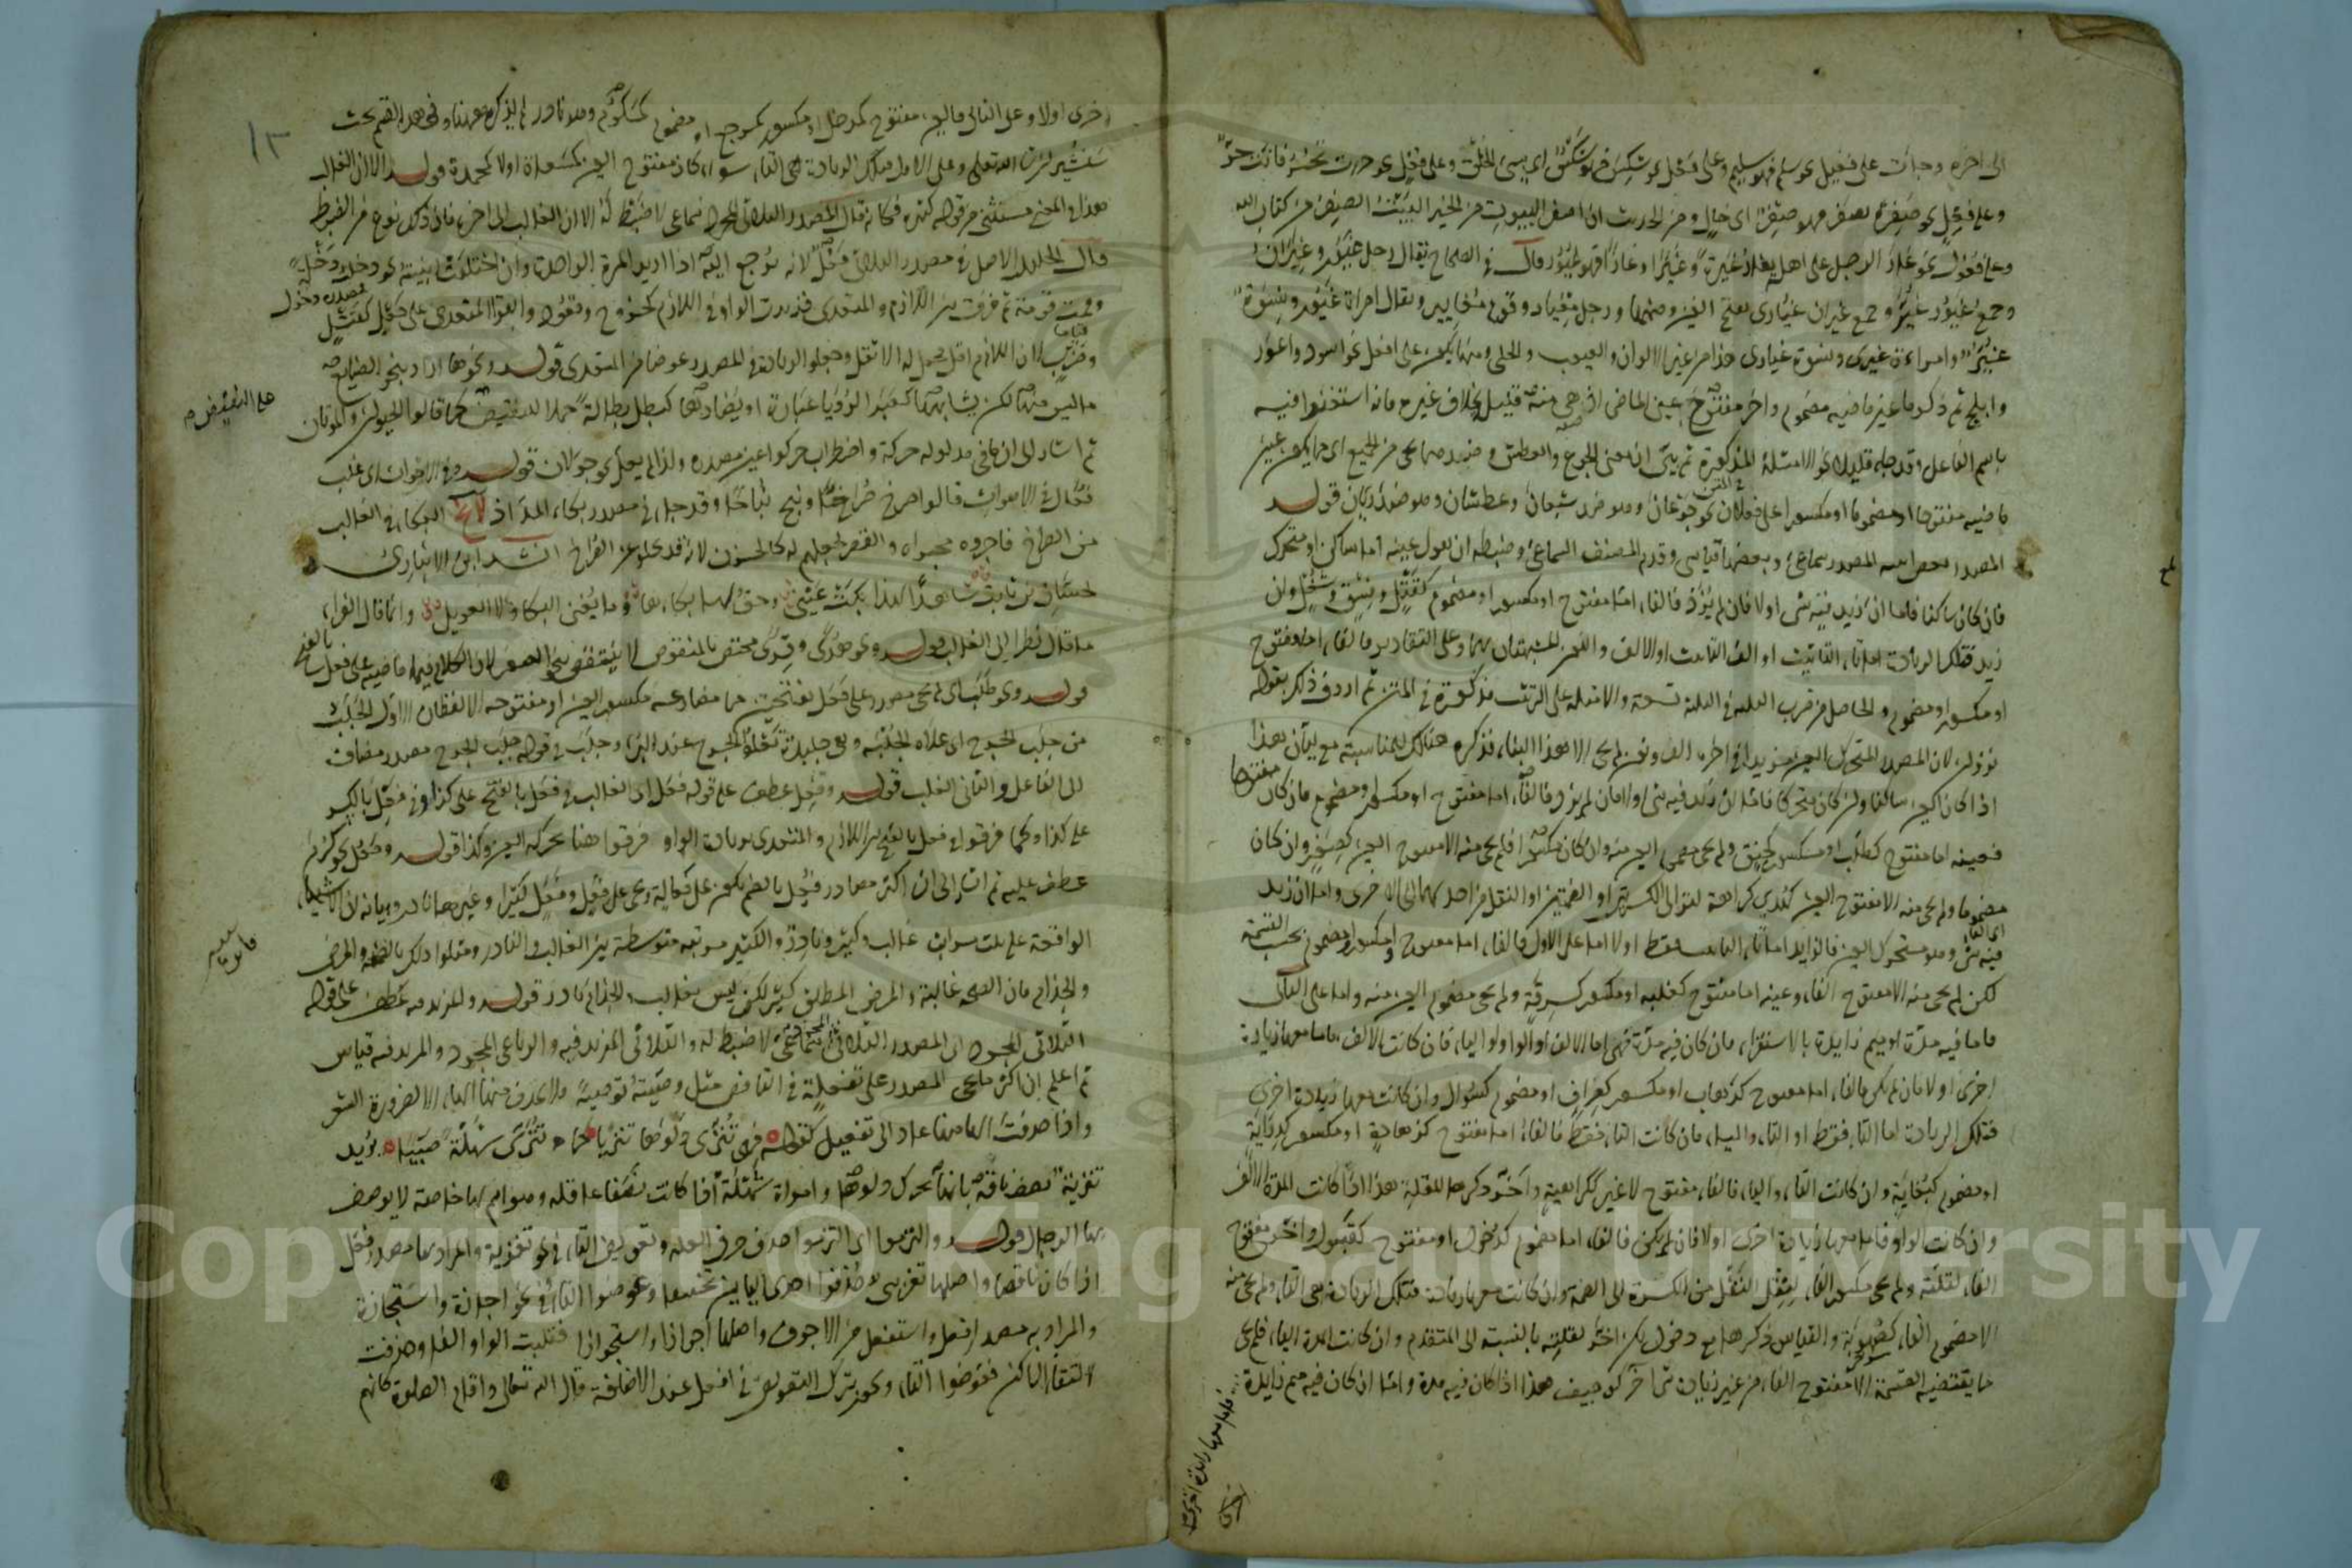 الى اخره وجاءت على فعيل نحو سلم فهو سليم وعلى فعل نحو شكس فهو شكس اى سيئ الخلق وعلى فعل نحو حررت تحر فانت حر
وعلى فعل نحو صفر يصفر فهو صفر اى خال ومن الحديث ان اصفر البيوت من الخير البيت الصفر من كتاب الله
وعلى فعول نحو غار الرجل على اهله يغار غيرة وغيرا وغارا فهو غيور قال فى الصحاح يقال رجل غيور وغيران
وجمع غيور غير وجمع غيران غيارى بفتح الغين وضمها ورجل مغيار وقوم مغايير ويقال امراة غيور ونسوة
غير وامراة غيرى ونسوة غيارى هذا من غير الالوان والعيوب والحلى ومنها يكون على افعل نحو اسود واعور
وابلج ثم ذكر ما عين ماضيه مضموم واخر مفتوح عين الماضى اذ هى منه قليل بخلاف غيره فانه استغنوا فيه
باسم الفاعل وقد جاء قليلا نحو الامثلة المذكورة ثم بين ان معنى الجوع والعطش وضدهما يجئ من الجميع اى مما يكون عين
ماضيه مفتوحا او مضموما او مكسورا على فعلان نحو جوعان وهو ضد شبعان وعطشان وهو ضد ريان قوله
المصدر بعض ابنية المصدر سماعى وبعضها قياسى وقدم المصنف السماعى وضبطه ان يقول عينه اما ساكن او متحرك
فان كان ساكنا فاما ان زيد فيه شئ اولا فان لم يزد فالفاء اما مفتوح او مكسور او مضموم كقتل وفسق وشغل وان
زيد فتلك الزيادة اما تاء التانيث او الف التانيث او الالف والنون المشبهتان بهما وعلى التقادير فالفاء اما مفتوح
او مكسور او مضموم والحاصل من ضرب الثلثة فى الثلثة تسعة والامثلة على الترتيب مذكورة فى المتن ثم اردف ذلك بقوله
نزوان لان المصدر المتحرك العين مزيدا فى اخره الف ونون لم يجئ الا هذا البناء فذكره هنالك للمناسبة مع بيان هذا
اذا كان العين ساكنا وان كان متحركا فاما ان زيد فيه شئ اولا فان لم يزد فالفاء اما مفتوح او مكسور او مضموم فان كان مفتوحا
فعينه اما مفتوح كطلب او مكسور كخنق ولم يجئ مضموم العين منه وان كان مكسورا فلم يجئ منه الا مفتوح العين كصغر وان كان
مضموما ولم يجئ منه الا مفتوح العين كهدى كراهة لتوالى الكسرتين او الضمتين او النقل من احديهما الى الاخرى واما ان زيد
فيه شئ وهو متحرك العين فالزائد اما تاء التانيث فقط اولا اما على الاول فالفاء اما مفتوح او مكسور او مضموم بحسب القسمة
لكن لم يجئ منه الا مفتوح الفاء وعينه اما مفتوح كغلبة او مكسور كسرقة ولم يجئ مضموم العين منه واما على الثانى
فاما فيه مدة او ميم زايدة بالاستقراء فان كان فيه مدة فهى اما الالف او الواو او الياء فان كانت الالف فاما معها زيادة
اخرى او لا فان لم يكن فالفاء اما مفتوح كذهاب او مكسور كصراف او مضموم كسؤال وان كانت معها زيادة اخرى
فتلك الزيادة اما التاء فقط او التاء والياء فان كانت التاء فقط فالفاء اما مفتوح كزهادة او مكسور كدراية
او مضموم كبغاية وان كانت التاء والياء فالفاء مفتوح لا غير ككراهية واخر ذكرها لقلته هذا اذا كانت المدة الالف
وان كانت الواو فاما معها زيادة اخرى اولا فان لم يكن فالفاء اما مضموم كدخول او مفتوح كقبول واخر مفتوح
الفاء لقلته ولم يجئ مكسور الفاء لثقل النقل من الكسرة الى الضمة وان كانت معها زيادة فتلك الزيادة هى التاء ولم يجئ منه
الا مضموم الفاء كصهوبة والقياس ذكرها مع دخول لكن اخر لقلته بالنسبة الى المتقدم وان كانت المدة الياء فلم يجئ
مما يقتضيه القسمة الا مفتوح الفاء من غير زيادة شئ اخر كوجيف هذا اذا كان فيه مدة واما ان كان فيه ميم زايدة
فاما معها زيادة اخرى
١٣
اخرى اولا وعلى الثانى فالعين مفتوح كمدخل او مكسور كمرجع او مضموم كمكرم وهو نادر لم يذكره ههنا وفى هذا القسم بحث
سنشير ان شاء الله تعالى وعلى الاول فتلك الزيادة هى التاء سواء كان مفتوح العين كمسعاة اولا كمحمدة قوله الا ان الغالب
هذا فى المعنى مستثنى من قوله كثيرة فكانه قال المصدر الثلاثى المجرد سماعى لا ضبط له الا ان الغالب الى اخره فان ذلك نوع من الضبط
قال الخليل الاصل فى مصدر الثلاثى فعل لانه يرجع اليه اذا اريد المرة الواحدة وان اختلفت ابنيته نحو دخل دخلة
وقمت قومة ثم فرقت بين اللازم والمتعدى فزيدت الواو فى اللازم كخروج وقعود وابقوا المتعدى على فعل كقتل
وضرب لان اللازم اقل فجعل له الاثقل وجعلوا الزيادة فى المصدر عوضا من المتعدى قوله ونحوها اراد بنحو الصنايع
ما ليس منها لكن يشابهها كعبر الرؤيا عبارة او يضادها كبطل بطالة حملا للنقيض كما قالوا الحيوان والموتان
على النقيض صح
ثم اشار الى ان ما فى مدلوله حركة واضطراب حركوا عين مصدره ولذا لم يعل نحو جولان قوله وفى الاصوات اى غلب
فعال فى الاصوات قالوا صرخ صراخا ونبح نباحا وقد جاء فى مصدر بكاء المد اذ لا يخ البكاء فى الغالب
من الصراخ فاجروه مجراه والقصر لجعلهم له كالحزن لانه قد يخلو عن الصراخ انشد ابن الانبارى
لحسان بن ثابت شاهدا لهذا بكت عينى وحق لها بكاها وما يغنى البكاء ولا العويل وانما قال الفراء
ما قال نظرا الى الغالب قوله ونحو هدى وقرى مختص بالمنقوص لا ينتقض بنحو الصغر لان الكلام فيما ماضيه على فعل بالفتح
قوله ونحو طلب اى لم يجئ مصدر على فعل بفتحتين مما مضارعه مكسور العين او مفتوحه الا لفظان الاول الجلب
من جلب الجرح اى علاه الجلبة وهى جليدة تعلو الجرح عند البرء وجلب فى قوله جلب الجرح مصدر مضاف
الى الفاعل والثانى الغلب قوله وفعل عطف على قوله فعل اى الغالب فى فعل بالفتح على كذا وفى فعل بالكسر
على كذا وكما فرقوا فى فعل بالفتح بين اللازم والمتعدى بزيادة الواو فرقوا هنا بحركة العين وكذا قوله وفعل نحو كرم
عطف عليه ثم اشار الى ان اكثر مصادر فعل بالضم يكون على فعالة ويجئ على فعل وفعل كثيرا وغيرهما نادر وبيانه ان الاشياء
الواقعة على ثلث مراتب غالب وكثير ونادر والكثير مرتبة متوسطة بين الغالب والنادر ومثلوا ذلك بالصحة والمرض
والجذام فان الصحة غالبة والمرض المطلق كثير لكن ليس بغالب والجذام نادر قوله والمزيد فيه عطف على قوله
الثلاثى المجرد اى المصدر الثلاثى المجرد سماعى لا ضبط له والثلاثى المزيد فيه والرباعى المجرد والمزيد فيه قياس
ثم اعلم ان اكثر ما يجئ المصدر على تفعلة فى الناقص مثل وصيته توصية ولا يحذف منها الهاء الا لضرورة الشعر
واذا حذفت الهاء منها عاد الى تفعيل كقوله فهى تنزى دلوها تنزيا كما تنزى شهلة صبيا يريد
تنزية يصف ناقة بانها تحرك دلوها وامراة شهلة اذا كانت نصفا عاقلة وهو اسم لها خاصة لا يوصف
بها الرجل قوله والتزموا اى التزموا حذف حرف العلة وتعويض التاء فى نحو تعزية والمراد بها مصدر فعل
اذا كان ناقصا واصلها تعزيى فحذفوا احدى اليايين تخفيفا وعوضوا التاء وفى نحو اجازة واستجازة
والمراد به مصدر افعل واستفعل من الاجوف واصلها اجوازا واستجوازا فقلبت الواو الفا وحذفت
لالتقاء الساكنين فعوضوا التاء ويجوز ترك التعويض فى افعل عند الاضافة قال الله تعالى واقام الصلوة كانهم
Copyright © King Saud University